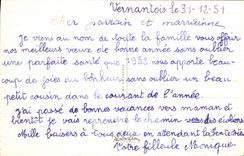 Vernantois le 31-12-51
Cher parrain et marraine
Je viens au nom de toute la famille vous offrir
nos meilleurs vœux de bonne année sans oublier
une parfaite santé que 1952 vous apporte beau-
coup de joies du bonheur sans oublier un beau
petit cousin dans le courant de l'année.
J'ai passé de bonnes vacances vers maman et
bientôt je vais reprendre le chemin vers des écoliers
Mille baisers à tous deux en attendant la
Votre filleule Monique